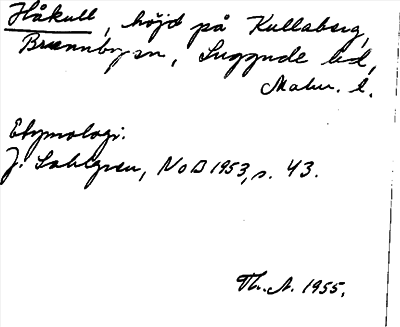 Håkull, höjd på Kullaberg,
Brunnbysn, Luggude hd,
Malm. l.
Etymologi:
J. Sahlgren, NoB 1953, s. 43.
Th. A. 1955.